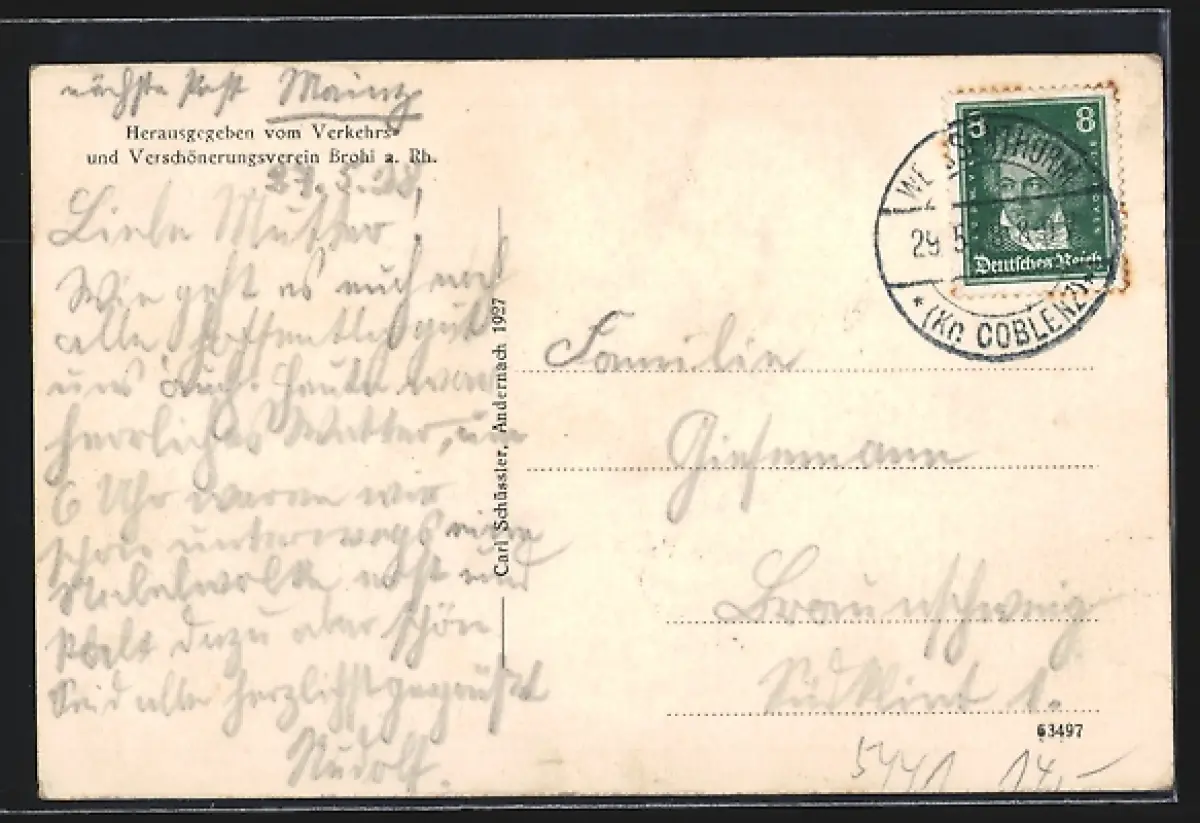 nächste Post Mainz
Herausgegeben vom Verkehrs-
und Verschönerungsverein Brohl a. Rh.
27.5.28
Liebe Mutter!
Wie geht es euch noch
alle, hoffentlich gut
uns auch. Heute war
herrliches Wetter, um
6 Uhr waren wir
schon unterwegs eine
Nebelwolke erst und
kalt dazu aber schön
Seid alle herzlichst gegrüßt
Rudolf.
Carl Schüssler, Andernach 1927
8 8
Deutsches Reich
WEISSENTHURM
29.5.
* (Kr. COBLENZ) *
Familie
Giesemann
Braunschweig
Südklint 1.
63497
5441 14,-